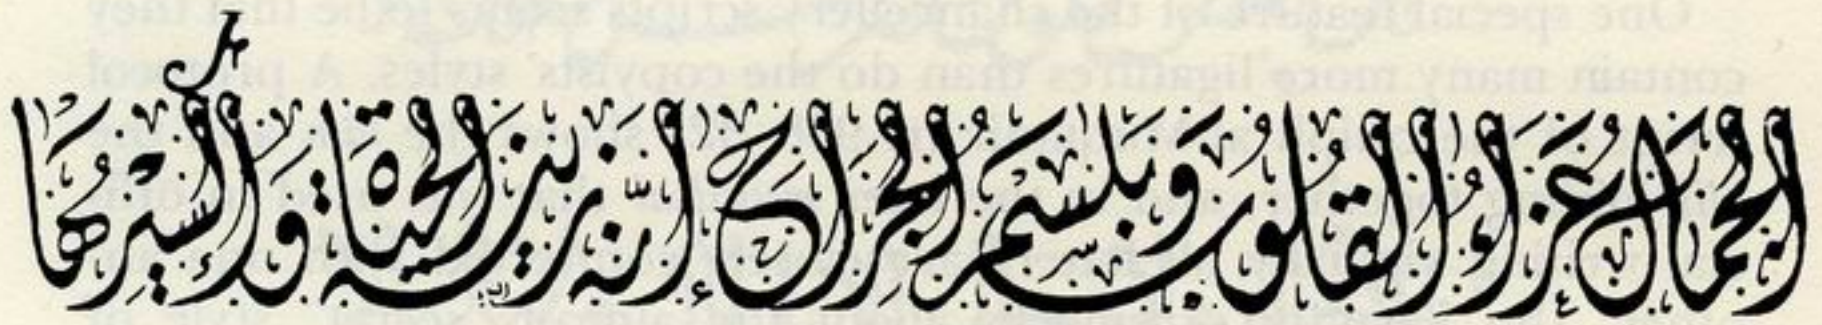 الجمال عزاء القلوب وبلسم الجراح إنّه زينة الحياة وإكسيرها